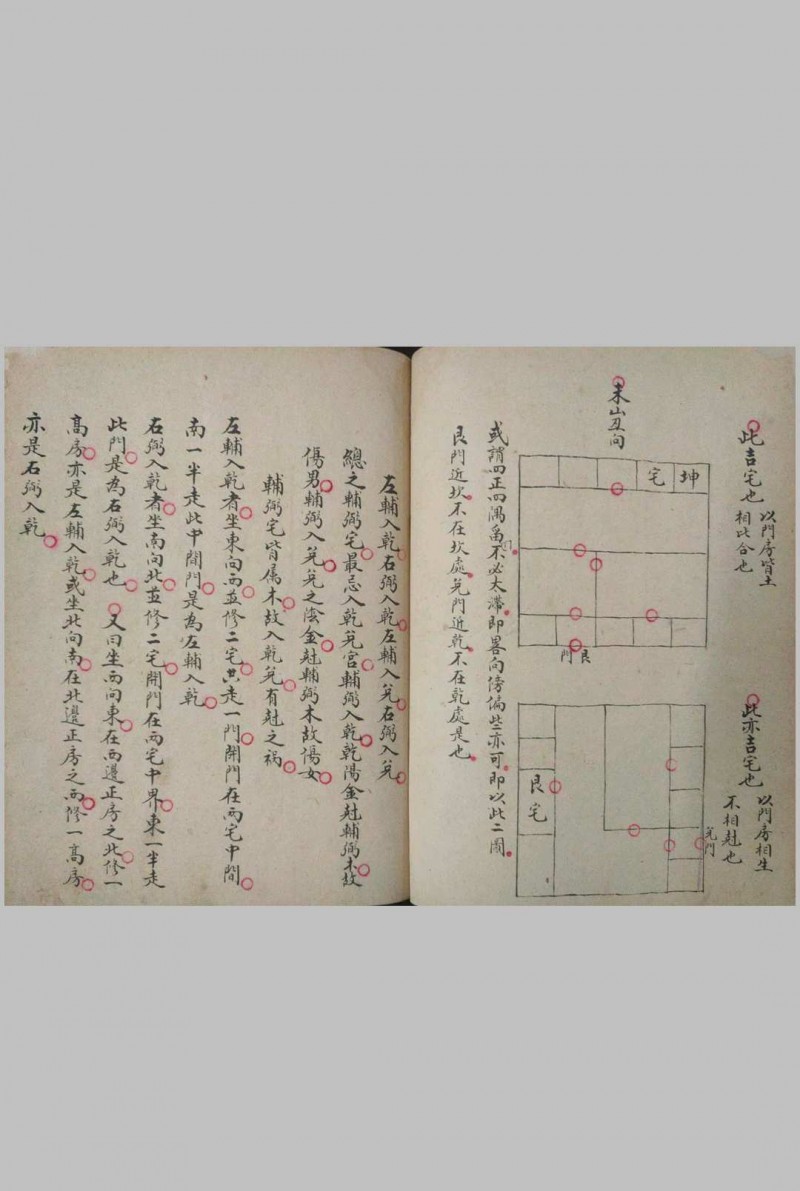 此吉宅也
以門房皆土
相比合也
未山丑向
坤
宅
艮
門
此亦吉宅也
以門房相生
不相尅也
艮宅
兌門
或謂四正四隅不必太滯即畧向傍偏些亦可即以此二圖
艮門近坎不在坎處兌門近乾不在乾處是也
左輔入乾石弼入乾左輔入兌石弼入兌
總之輔弼宅最忌入乾兌宮輔弼入乾乾陽金尅輔弼木故
傷男輔弼入兌兌之陰金尅輔弼木故傷女
輔弼宅皆屬木故入乾兌有尅之禍
左輔入乾者坐東向西並修二宅共走一門開門在兩宅中間
南一半走此中間門是為左輔入乾
石弼入乾者坐南向北並修二宅開門在兩宅中界東一半走
此門是為石弼入乾也又曰坐西向東在西邊正房之北修一
高房亦是左輔入乾或坐北向南在北邊正房之西修一高房
亦是石弼入乾